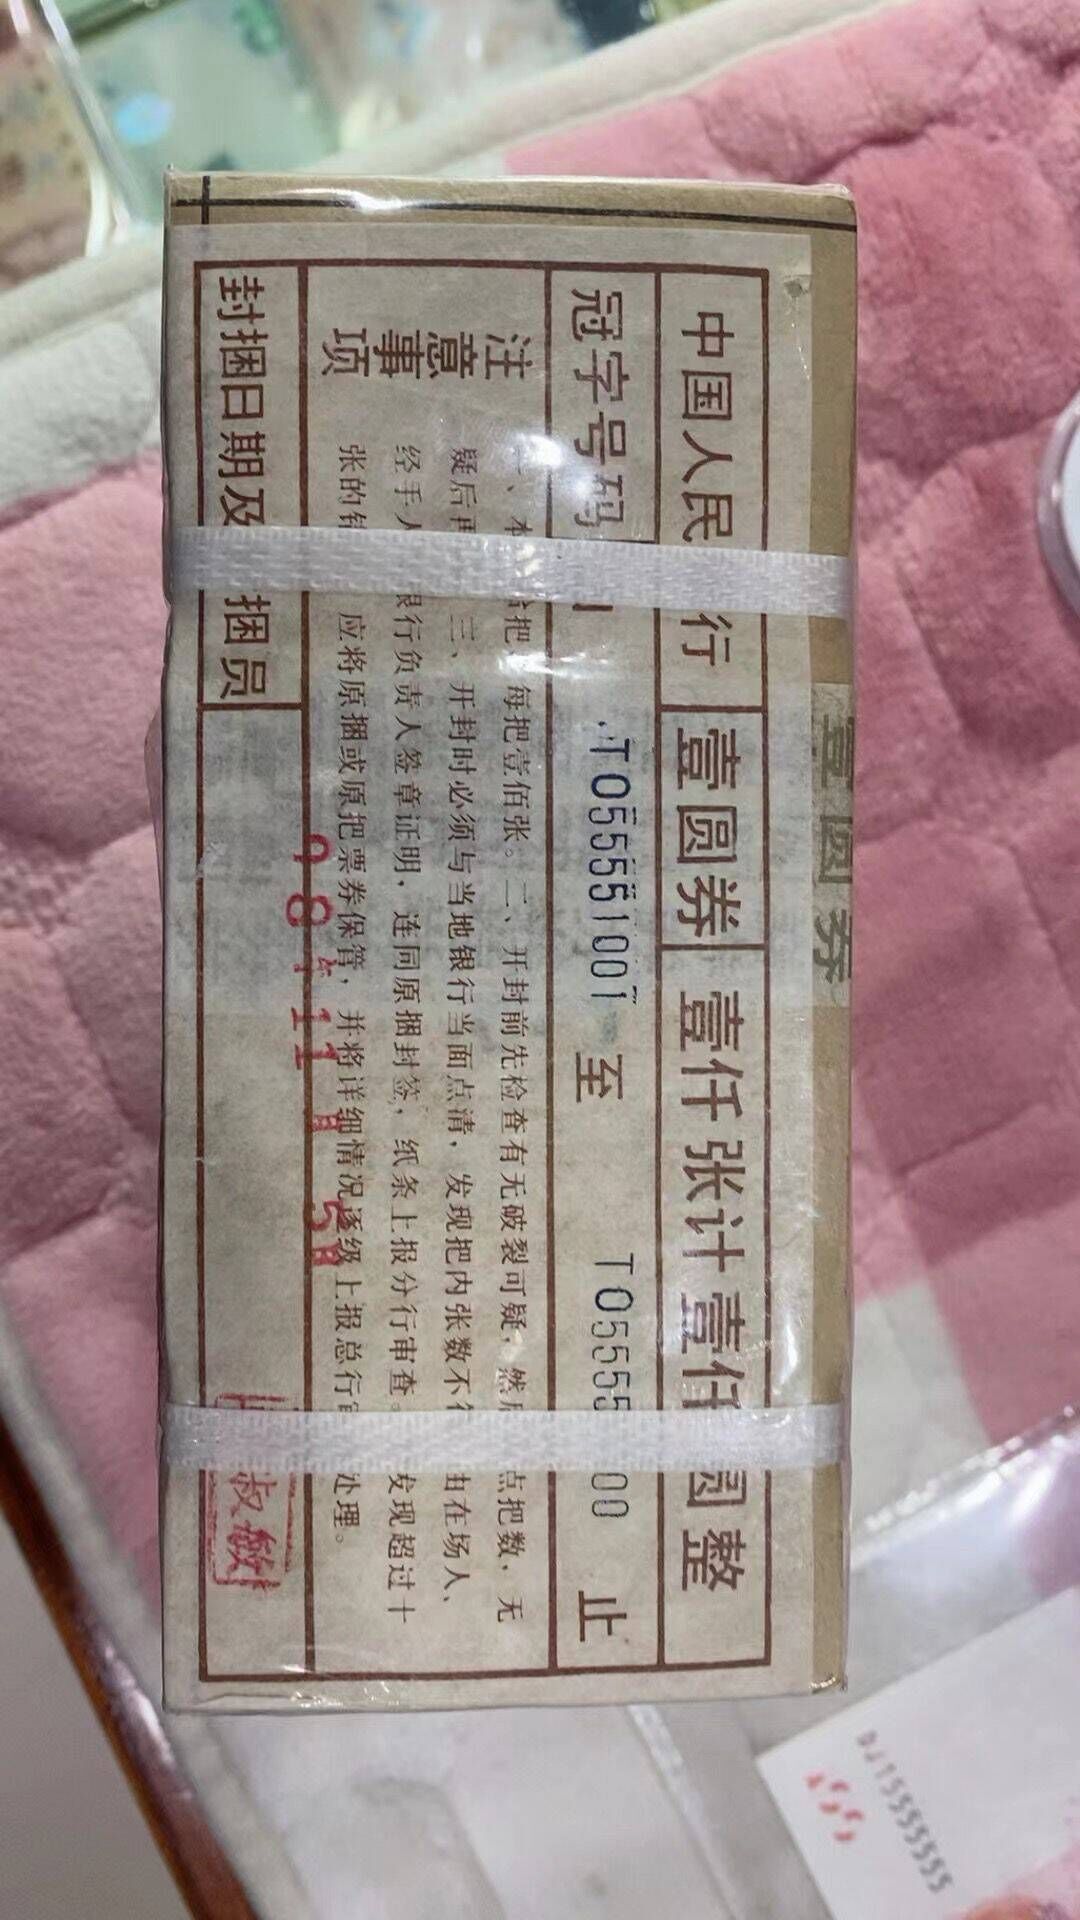 中国人民 行 壹圆券 壹仟张计壹仟 圆整
冠字号码 T055551001 至 T05555 00 止
注意事项
、本 把,每把壹佰张。二、开封前先检查有无破裂可疑,然后 点把数,无
疑后再 三、开封时必须与当地银行当面点清,发现把内张数不 由在场人、
经手人 银行负责人签章证明,连同原捆封签,纸条上报分行审查。 发现超过十
张的 应将原捆或原把票券保管,并将详细情况逐级上报总行 处理。
封捆日期及 捆员
98年11月5日
叔敏
壹圆券
DJ15555555